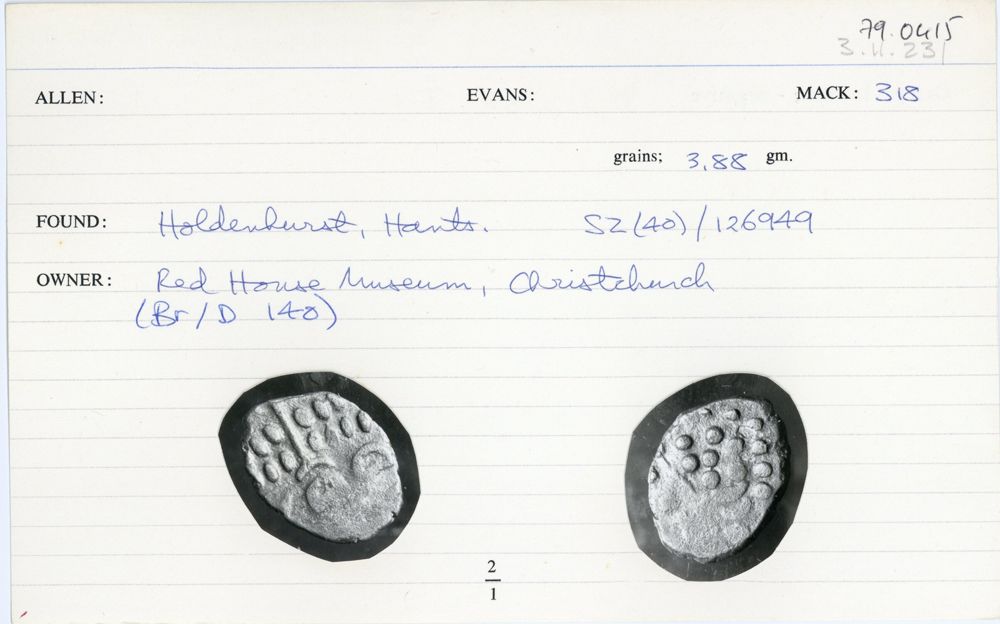 79.0415
3.11.231
ALLEN: EVANS: MACK: 318
grains; 3.88 gm.
FOUND: Holdenhurst, Hants. SZ(40)/126949
OWNER: Red House Museum, Christchurch
(Br/D 140)
2
1